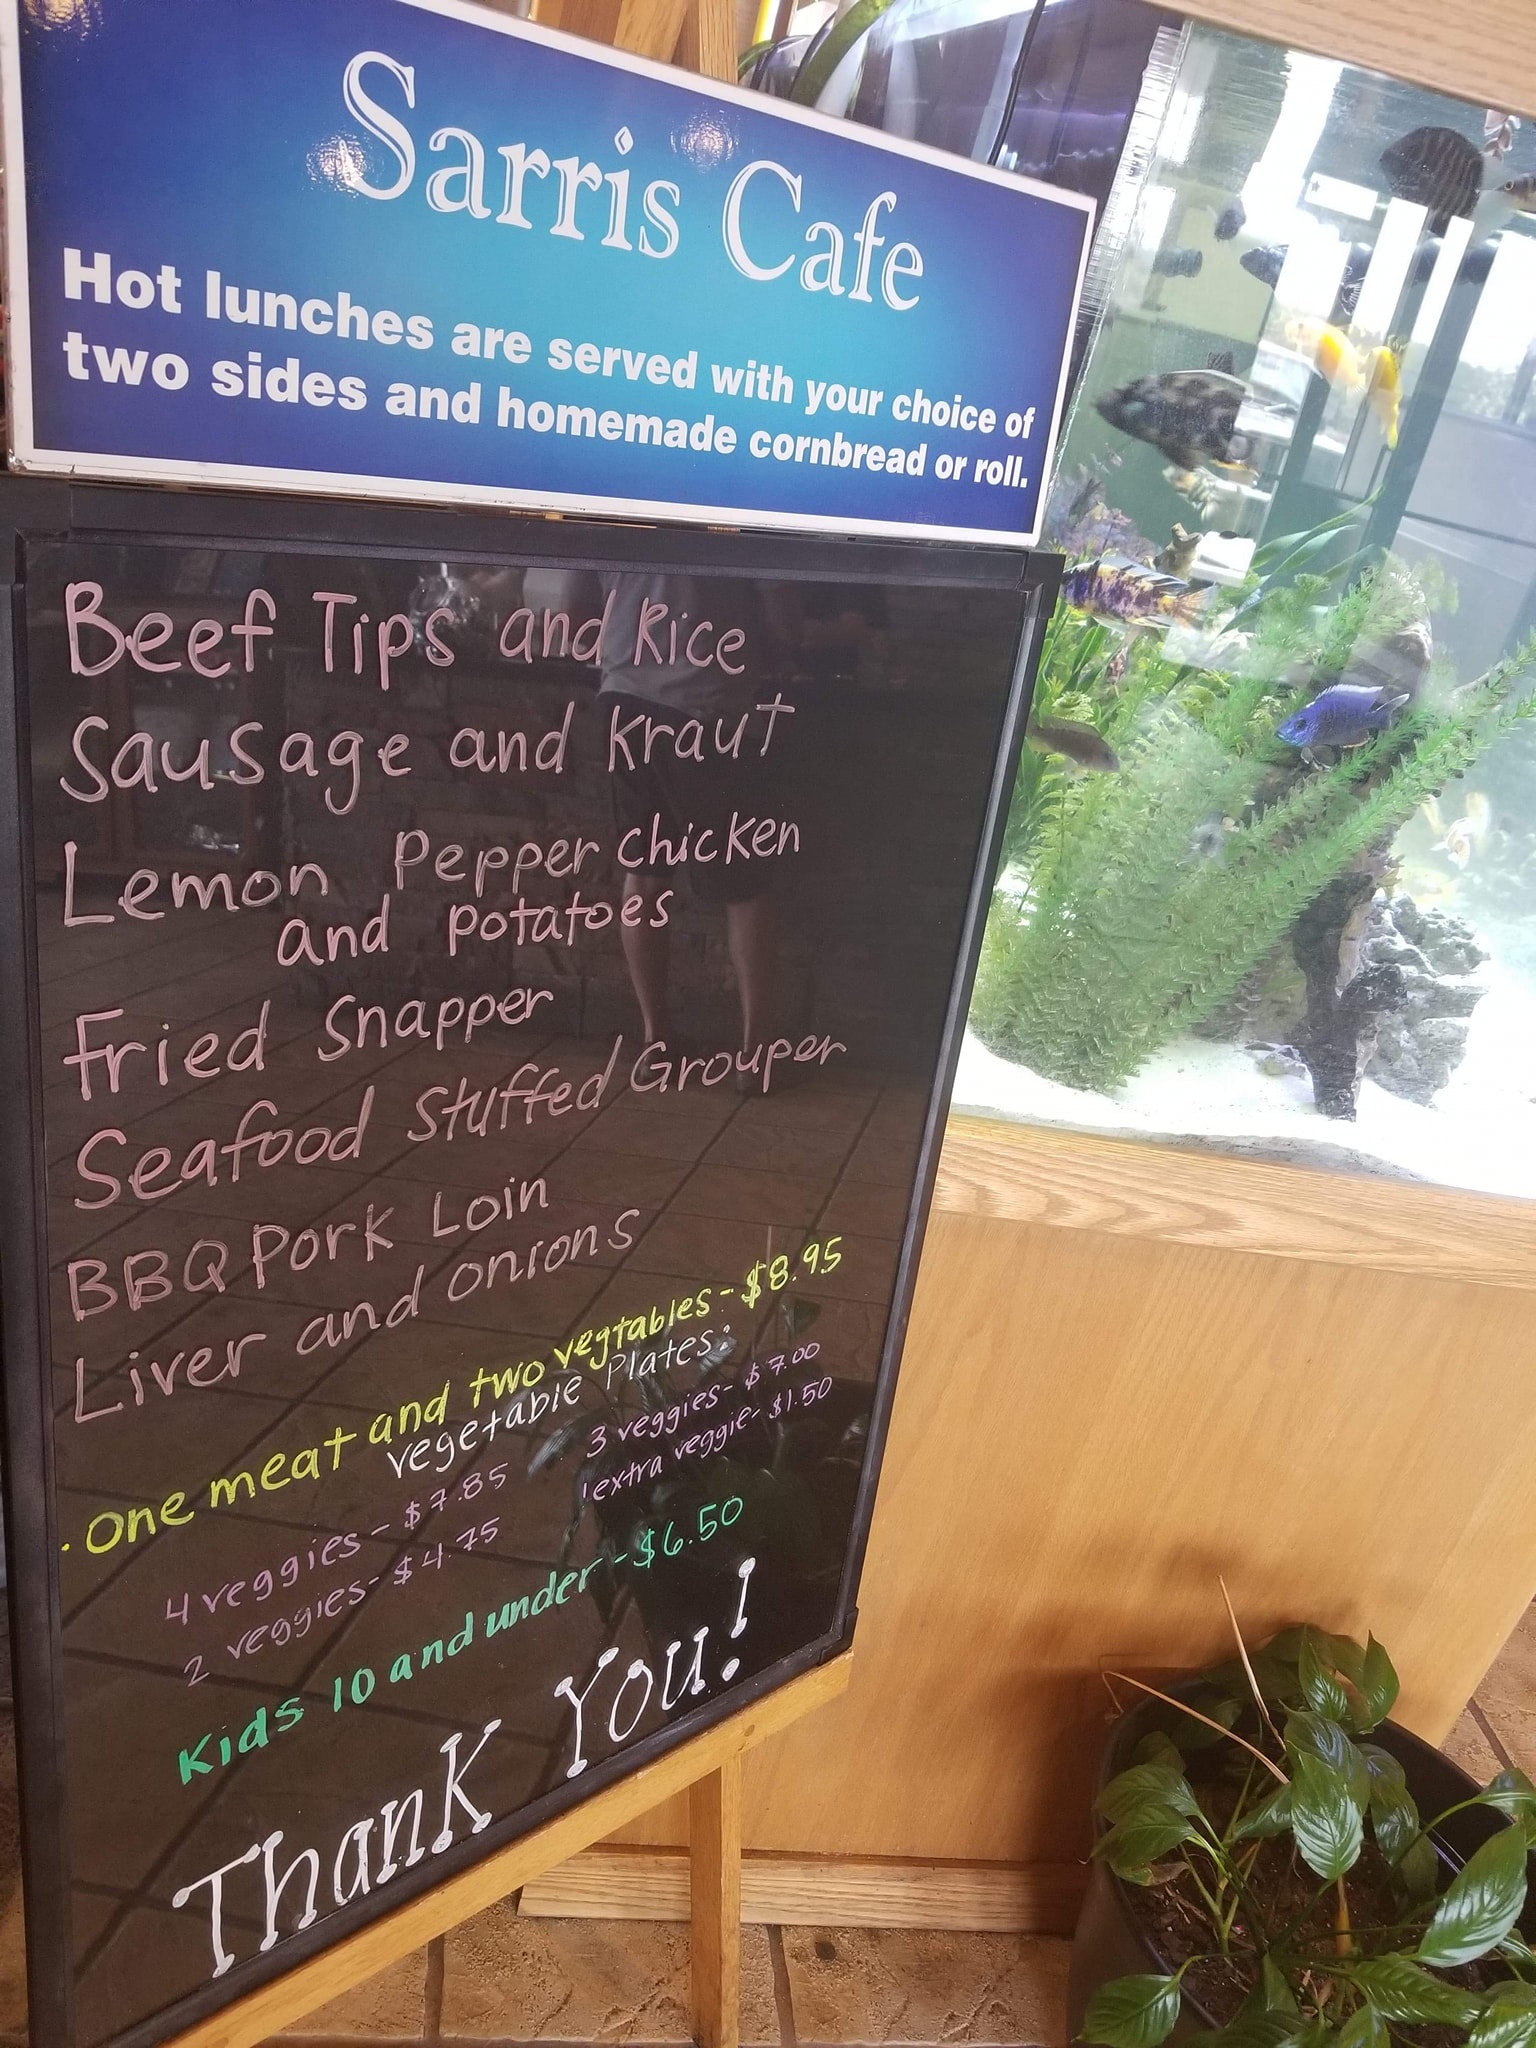 Sarris Cafe
Hot lunches are served with your choice of
two sides and homemade cornbread or roll.
Beef Tips and Rice
Sausage and Kraut
Lemon Pepper Chicken
and potatoes
Fried Snapper
Seafood Stuffed Grouper
BBQ Pork Loin
Liver and onions
One meat and two vegtables - $8.95
vegetable Plates:
4 veggies - $7.85
3 veggies - $7.00
2 veggies - $4.75
1 extra veggie - $1.50
Kids 10 and under - $6.50
Thank You!